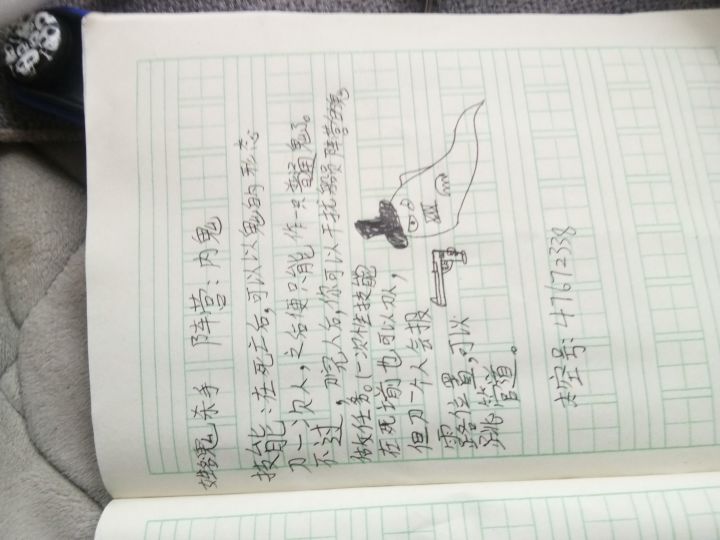 杀手 阵营：内鬼
技能：在死亡后，可以以鬼的形态
刀一次人，之后便只能作一只普通鬼了。
不过，刀完人后，你可以干扰船员阵营
做任务。(一次性技能
在死增前也可以砍，
但刀一个人会报
露位置，可以
跳管道。
太空号：47672338